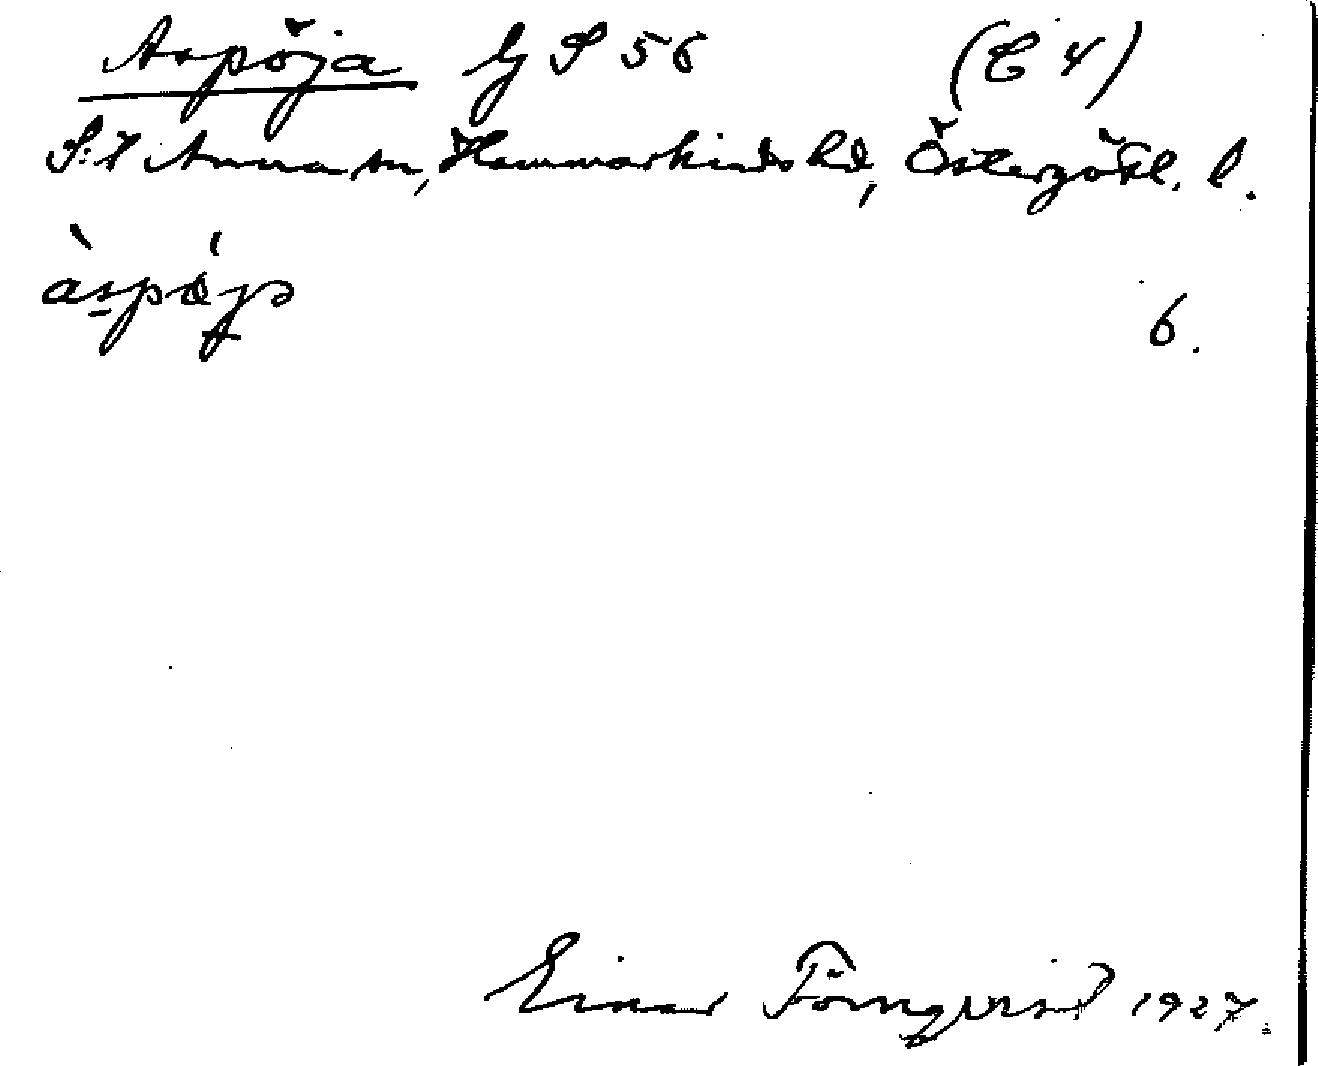 Aspöja GS 56 (C 4)
S:t Anna sn, Hammarkinds hd, Östergötl. l.
àspǿja
6.
Einar Törnqvist 1927.